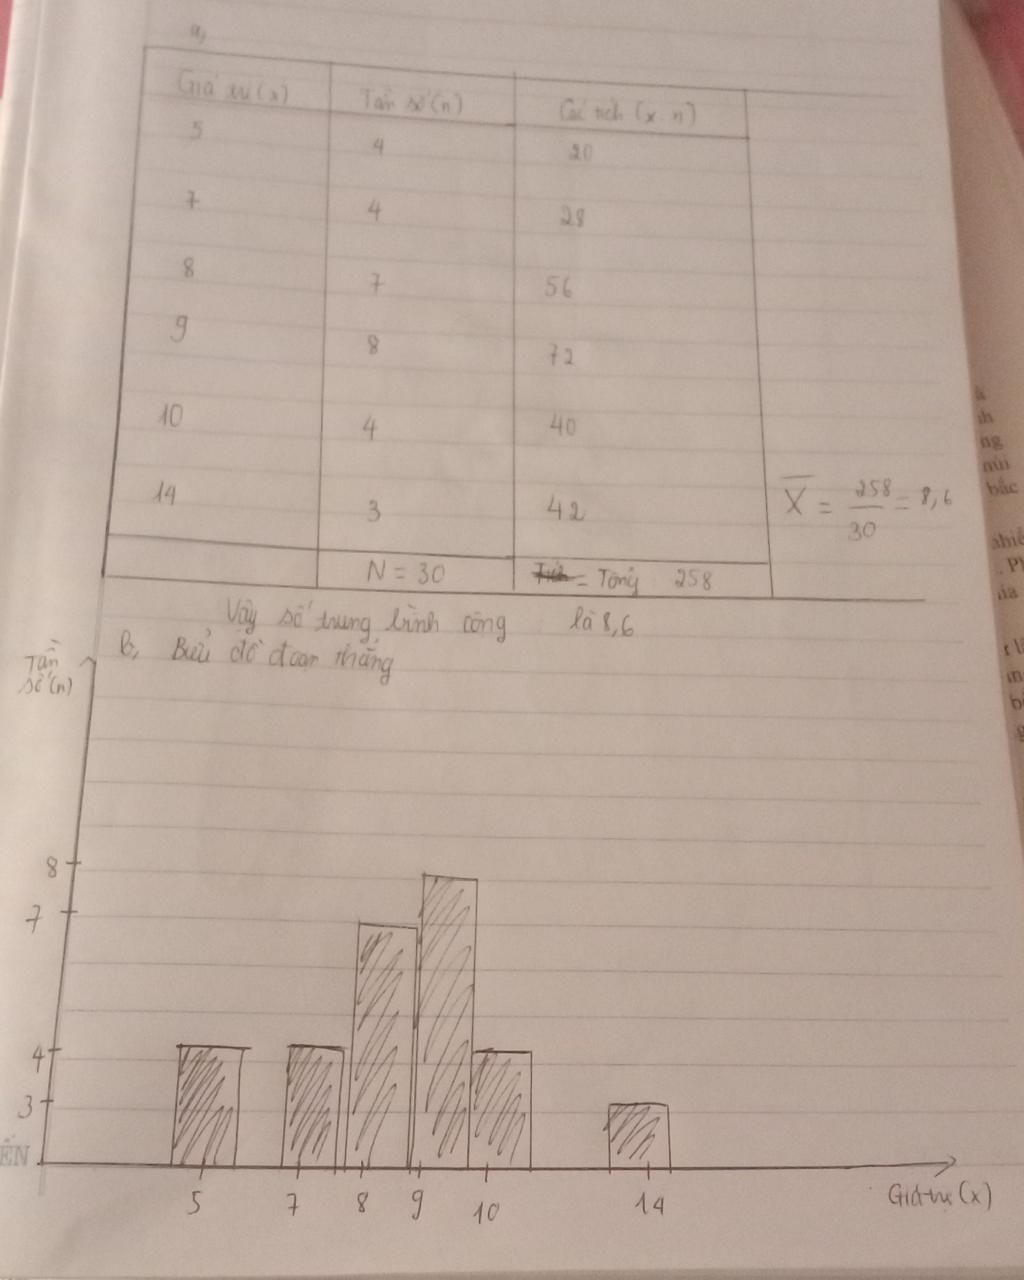 a,
Giá trị (x) Tần số (n) Các tích (x.n)
5 4 20
7 4 28
8 7 56
9 8 72
10 4 40
14 3 42
X = 258/30 = 8,6
N = 30 = Tổng 258
Vậy số trung bình cộng là 8,6
b, Biểu đồ đoạn thẳng
Tần
số (n)
8
7
4
3
5 7 8 9 10 14
Giá trị (x)
ẾN